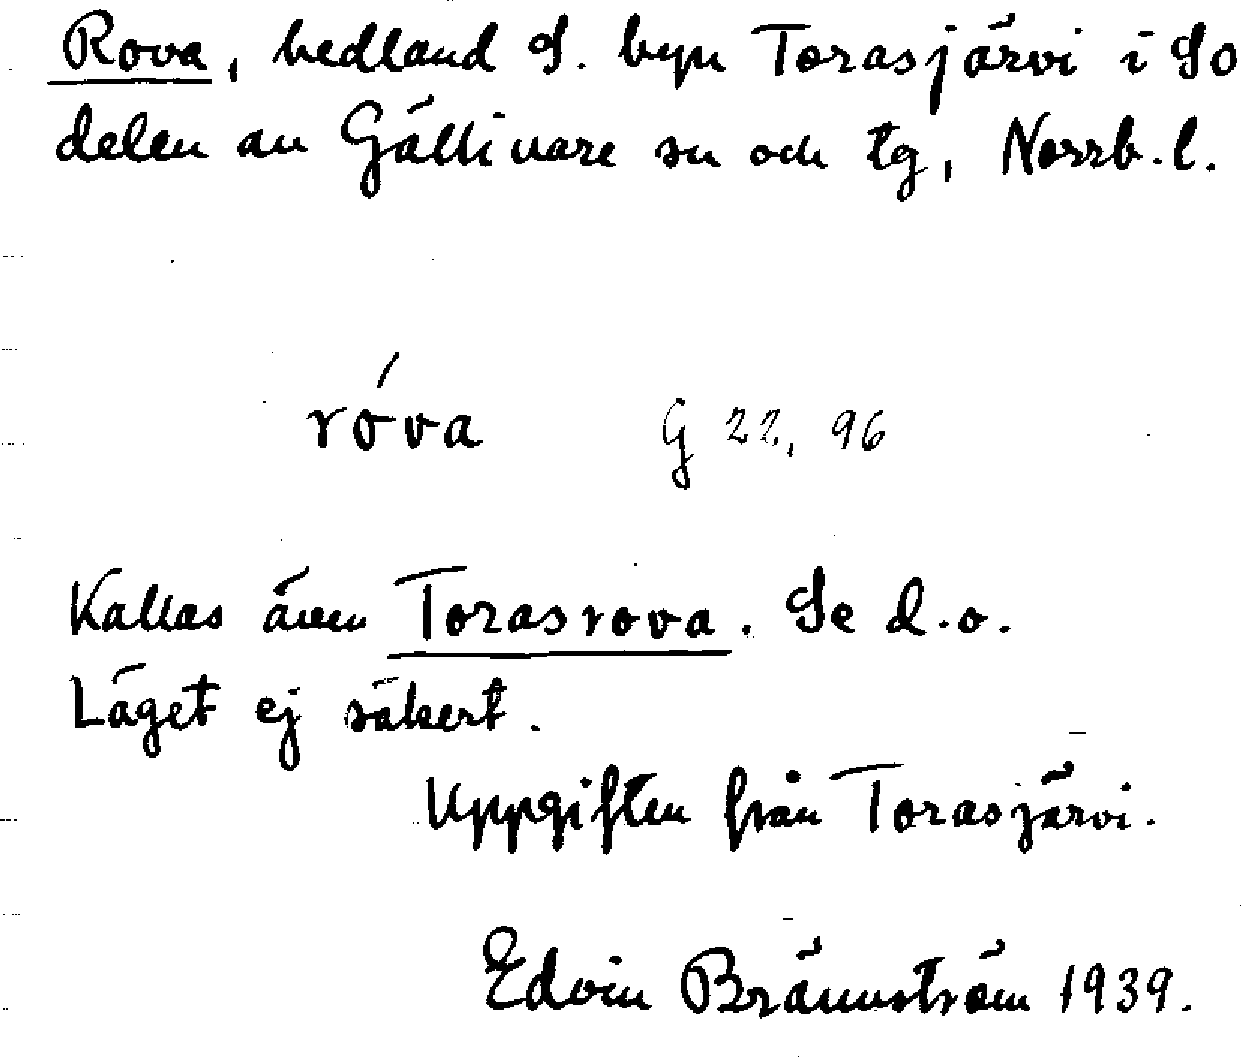 Rova, hedland S. byn Torasjärvi i SO
delen av Gällivare sn och tg, Norrb. l.
róva G 22, 96
Kallas även Torasrova. Se d.o.
Läget ej säkert.
Uppgiften från Torasjärvi.
Edvin Brännström 1939.